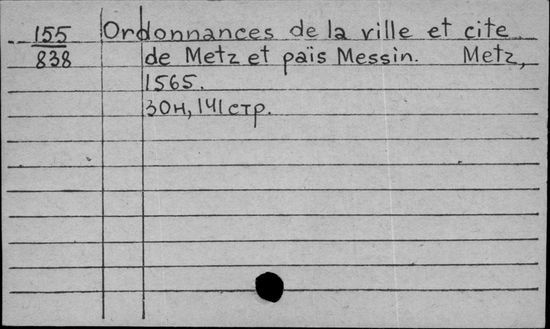 155 Ordonnances de la ville et cite
838 de Metz et païs Messin. Metz,
1565.
30н, 141 стр.